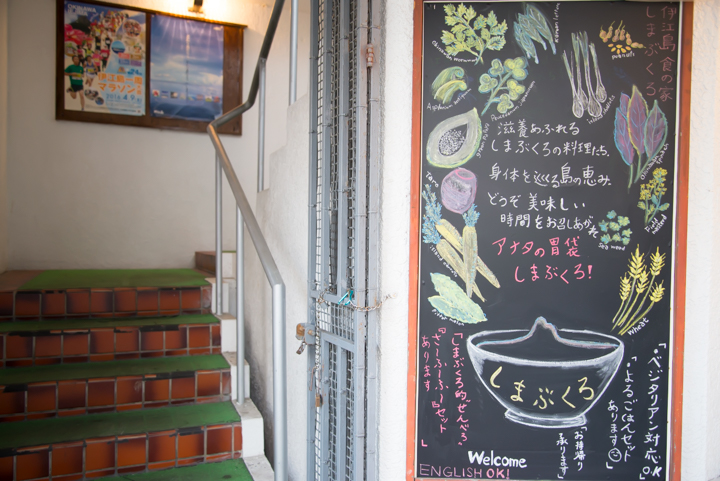 伊江島一周
マラソン
伊江島 食の家
しまぶくろ
peanuts
滋養あふれる
しまぶくろの料理たち、
身体を巡る島の恵み、
どうぞ 美味しい
時間をお召しあがれ
アナタの胃袋
しまぶくろ!
Taro
Sea weed
Wheat
しまぶくろ
「しまぶくろ的"せんべろ"
『さーふーふー』セット
あります 」
「お持帰り
承ります」
"ベジタリアン対応O.K
"よるごはんセット
あります
Welcome
ENGLISH OK!